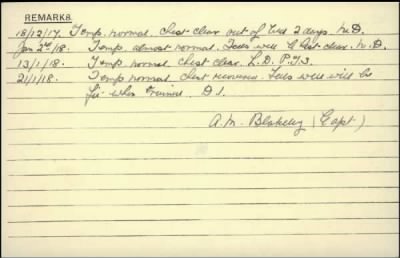 REMARKS.
18/12/17. Temp. normal. Chest clear out of bed 2 days. M.D.
Jan 2nd/18. Temp. almost normal. Feels well Chest clear. M.D.
13/1/18. Temp normal, chest clear. L.D. P.T.3.
21/1/18. Temp normal. Feels well will be
fit when trained. D1.
A.M. Blakeley (Capt)